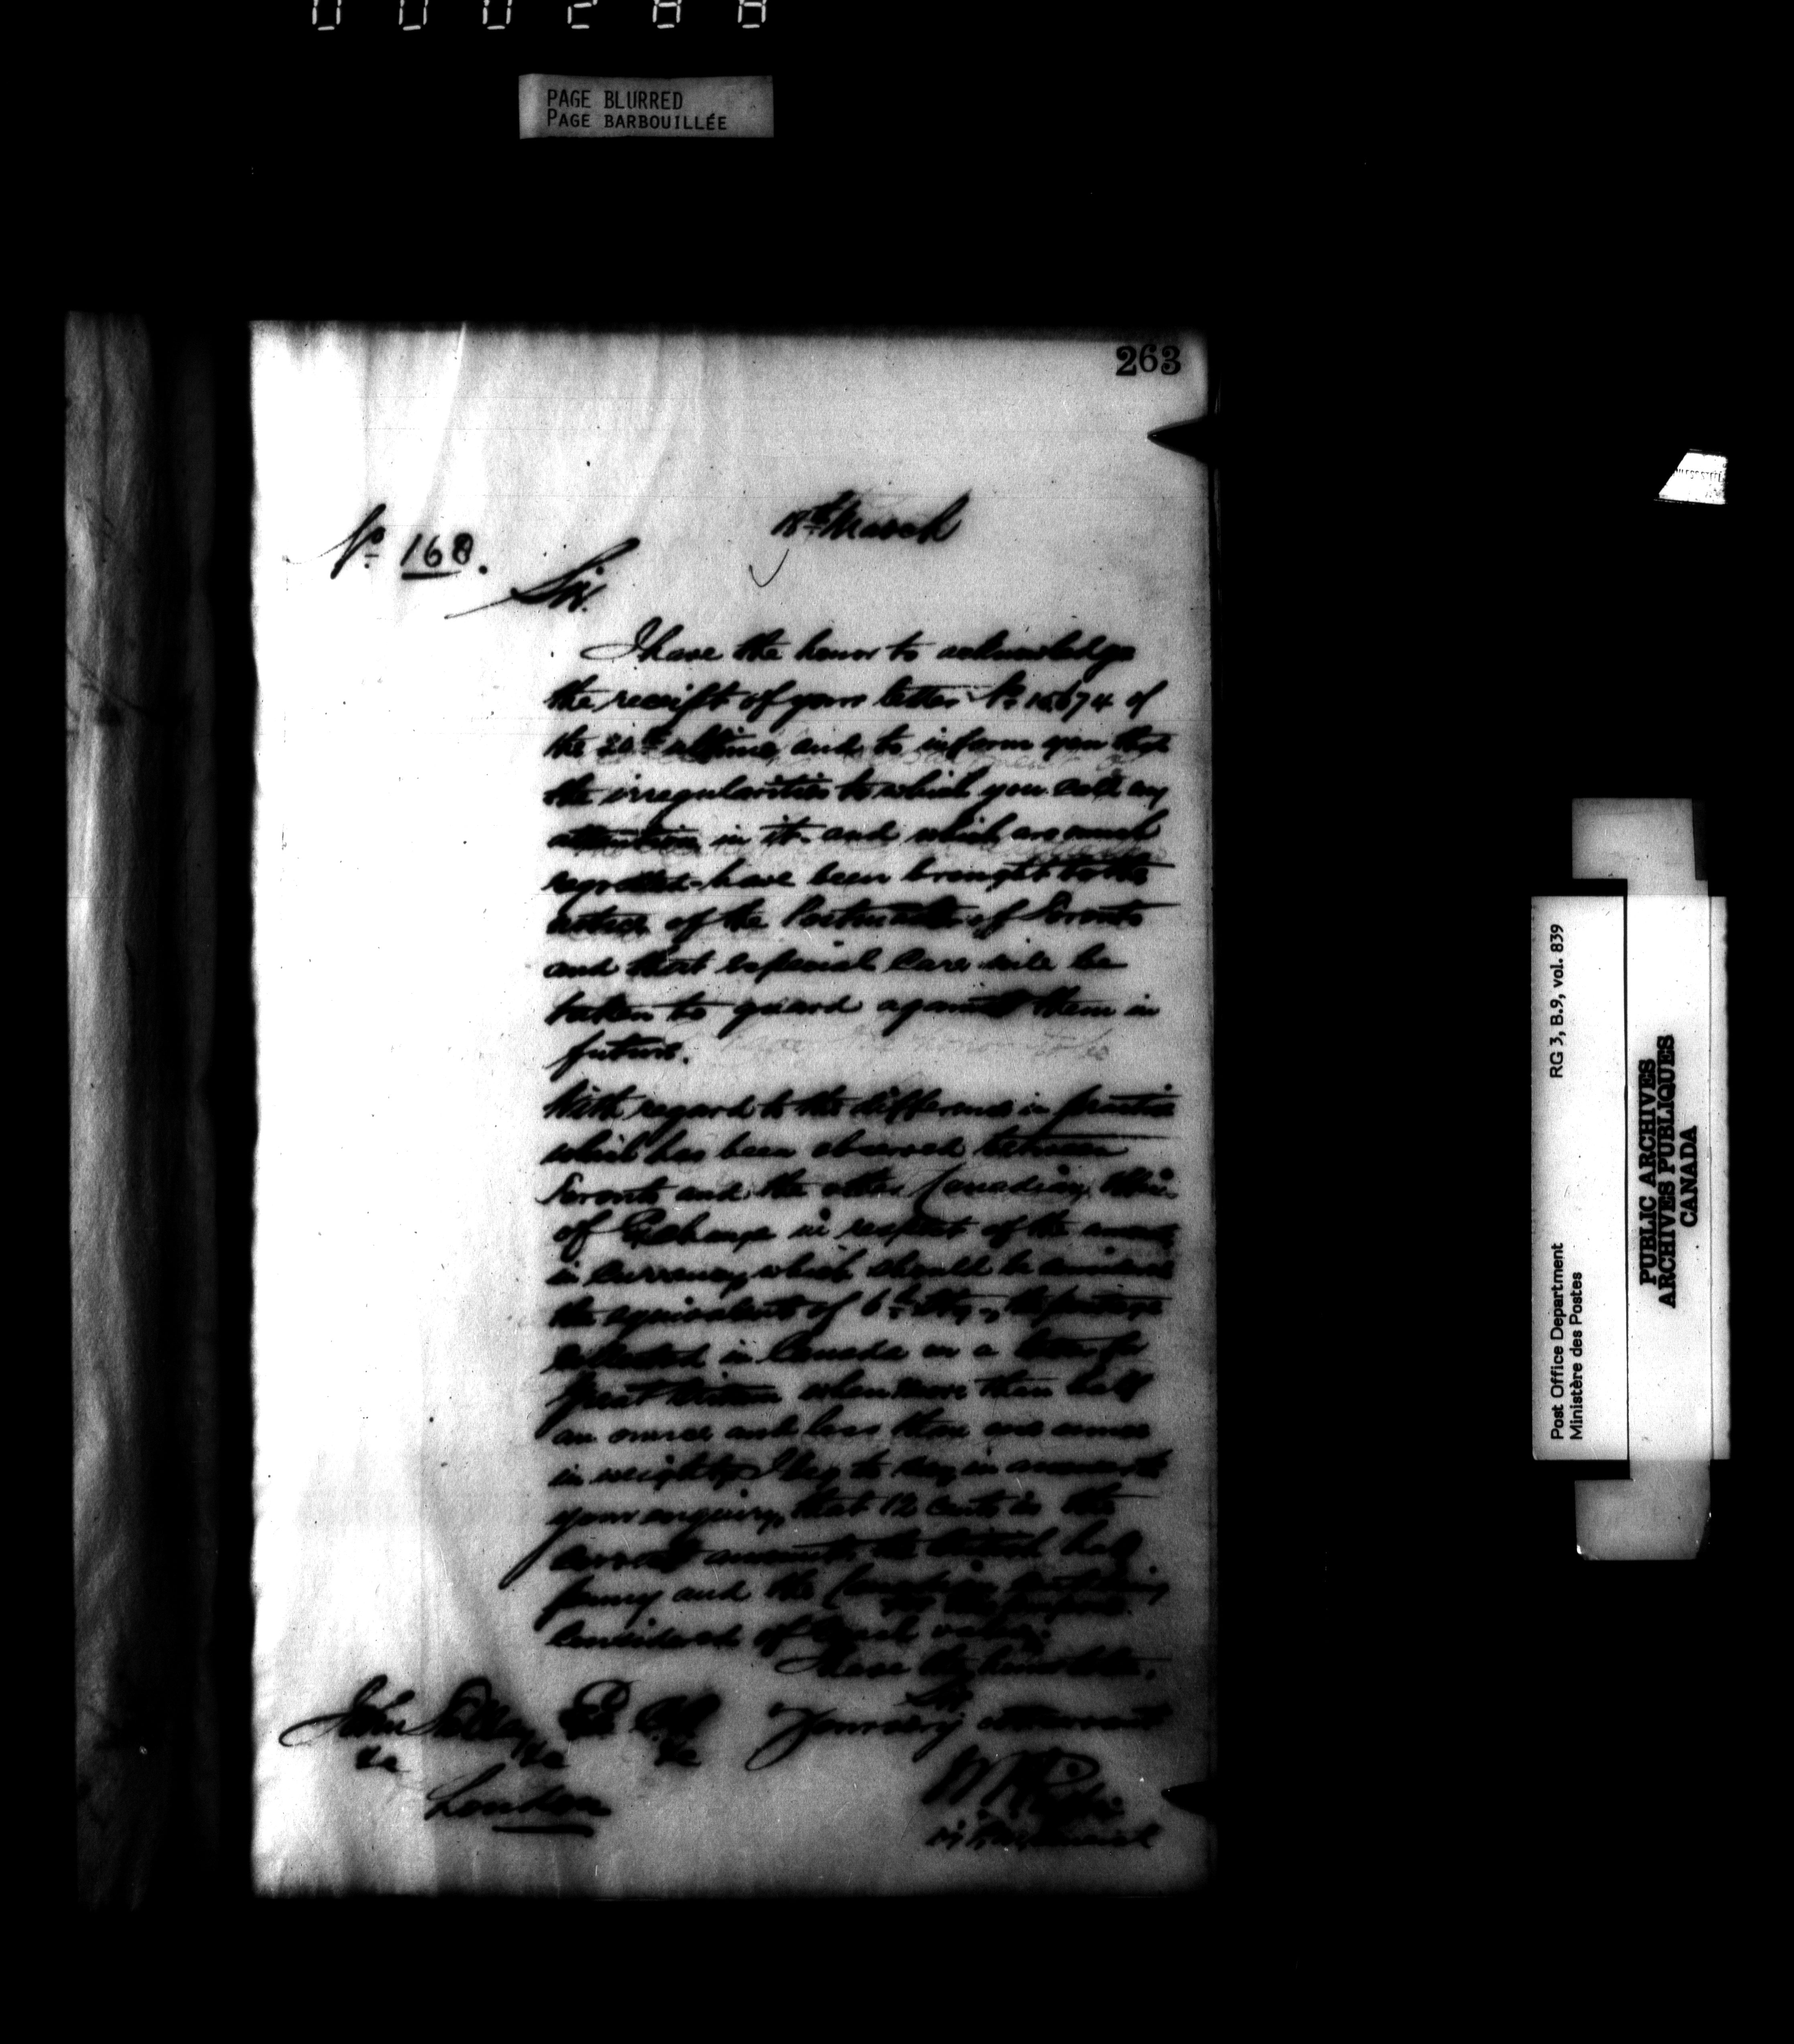 000288
PAGE BLURRED
PAGE BARBOUILLÉE
263
18th March
No 168.
Sir.
I have the honor to acknowledge
the receipt of your letter No of
the ultimo, and to inform you that
the irregularities to which you call my
attention in it - and which are much
regretted - have been brought to the
notice of the Postmaster of Toronto
and that especial care will be
taken to guard against them in
future.
With regard to the difference in practice
which has been observed between
Toronto and the other Canadian Offices
of Exchange in respect of the amount
in currency which should be considered
the equivalent of 6d Stg, the postage
collected in Canada on a letter for
Great Britain when more than half
an ounce and less than one ounce
in weight, I beg to say in answer to
your enquiry, that 12 cents is the
correct amount, the British half
penny and the Canadian cent being
for this purpose
considered of equal value.
I have the honor to be,
Sir
Your very obt servant
John Tilley Esq
&c &c &c
London
RG 3, B.9, vol. 839
Post Office Department
Ministère des Postes
PUBLIC ARCHIVES
ARCHIVES PUBLIQUES
CANADA